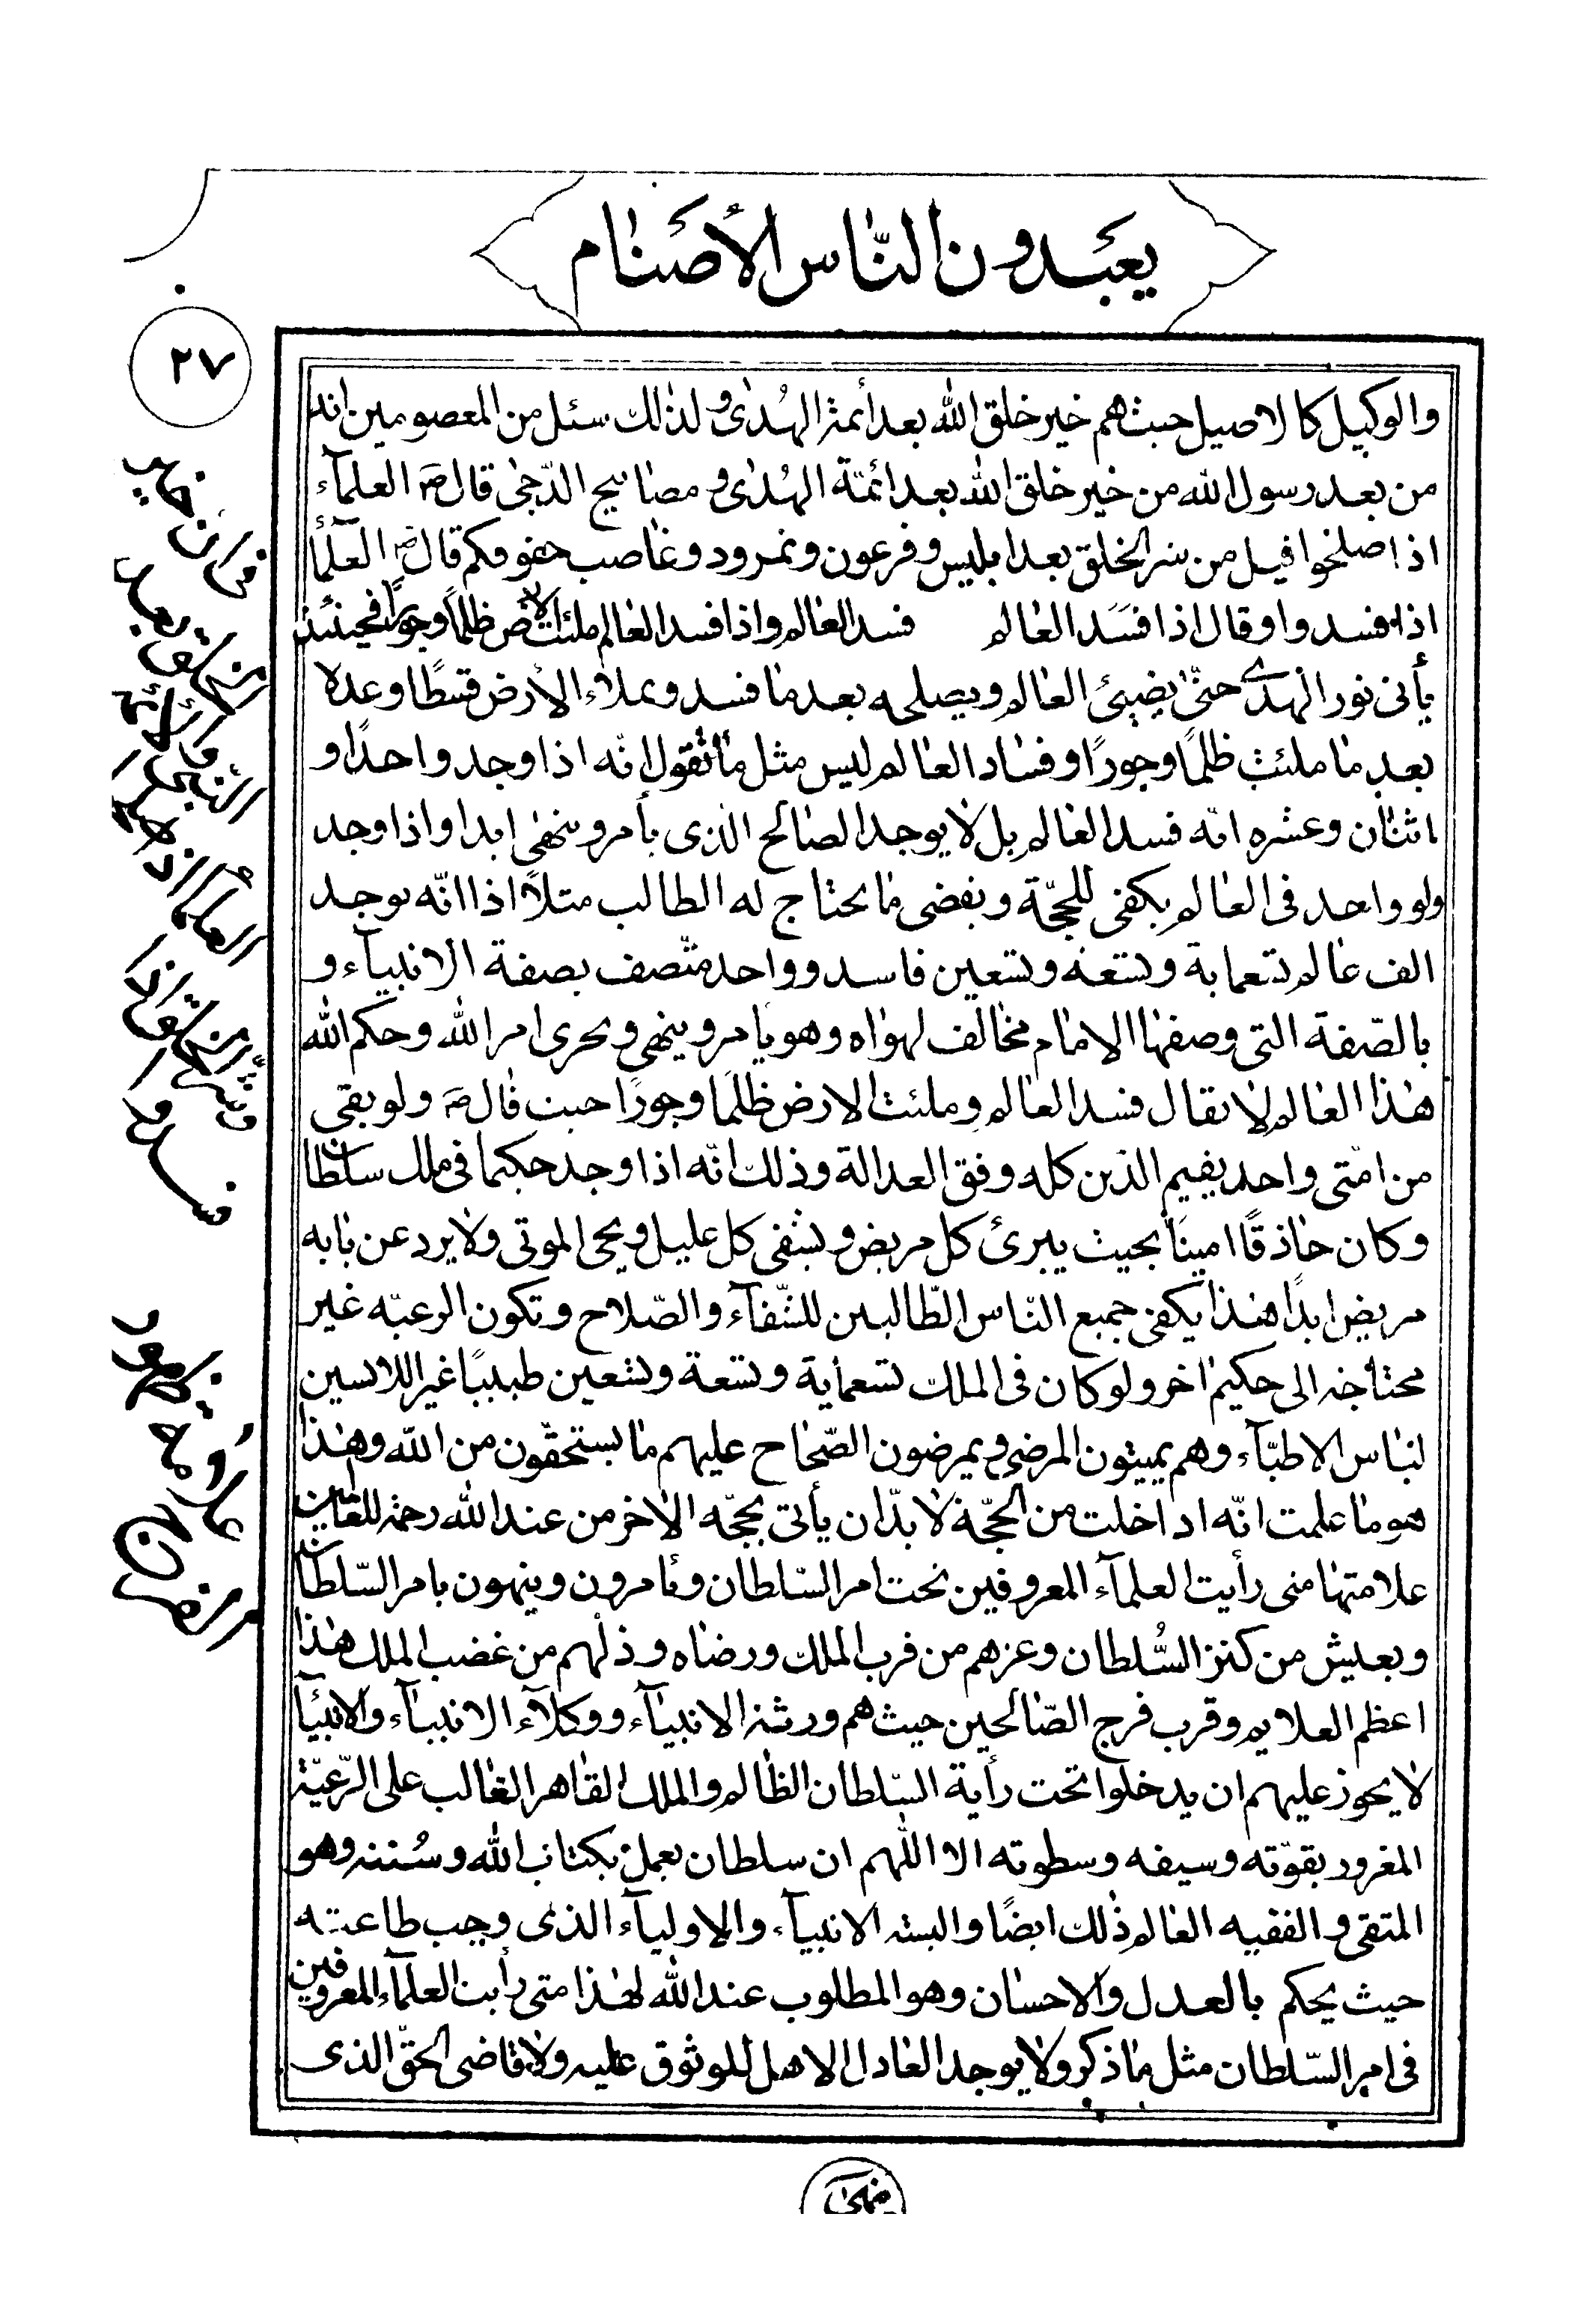 يعبدون الناس الأصنام
٢٧
والوكيل كالاصيل حيث هم خير خلق الله بعد أئمة الهدى ولذالك سئل من المعصومين انه
من بعد رسول الله من خير خلق الله بعد ائمّة الهُدى و مصابيح الدّجى قال ؑ العلمآء
اذا صلحوا قيل من شر الخلق بعد ابليس و فرعون و نمرود و غاصب حقوقكم قال ؑ العلمآء
اذا فسدوا وقال اذا فسَد العالم فسد العالم واذا فسد العالم ملئت الارض ظلمًا وجورًا فحينئذ
يأتى نور الهدى حتّى يضيئ العالم ويصلحه بعد ما فسد ويملاء الارض قسطًا وعدلا
بعد ما ملئت ظلمًا وجورًا وفساد العالم ليس مثل ما تقول انّه اذا وجد واحدًا و
اثنان وعشره انّه فسد العالم بل لا يوجد الصالح الذى يأمر وينهى ابدا واذا وجد
ولو واحد فى العالم يكفى للحجّة و يقضى ما يحتاج له الطالب مثلاً اذا انّه يوجد
الف عالم تسعماية وتسعه وتسعين فاسد وواحد متّصف بصفة الانبيآء و
بالصّفة التى وصفها الامام مخالف لهواه وهو يامر وينهى ويجرى امر الله وحكم الله
هٰذا العالم لا يقال فسد العالم وملئت الارض ظلمًا وجورًا حيث قال ؑ ولو بقى
من امّتى واحد يقيم الدّين كله وفق العدالة وذلك انّه اذا وجد حكيما فى ملك سلطان
وكان حاذقًا امينًا بحيث يبرئ كل مريض ويشفى كل عليل ويحى الموتى ولا يرد عن بابه
مريض ابدًا هٰذا يكفى جميع النّاس الطّالبين للشّفآء والصّلاح وتكون الرعيّه غير
محتاجه الى حكيم اخر ولو كان فى الملك تسعماية وتسعة وتسعين طبيبًا غير اللابسين
لباس الاطبّآء وهم يميتون المرضى و يمرضون الصّحاح عليهم ما يستحقّون من الله وهٰذا
هو ما علمت انّه اذا خلت من الحجّة لا بدّ ان يأتى بحجّه الاخر من عند الله رحمة للعالمين
علامتها متى رأيت العلمآء المعروفين تحت امر السّلطان ويامرون وينهون بامر السّلطان
وبعيش من كنز السُّلطان وعزهم من قرب الملك ورضاه وذلّهم من غضب الملك هٰذا
اعظم العلايم وقرب فرج الصّالحين حيث هم ورثة الانبيآء ووكلآء الانبيآء والانبيآ
لا يجوز عليهم ان يدخلوا تحت رأية السّلطان الظالم والملك القاهر الغالب على الرّعيّة
المغرور بقوّته وسيفه وسطوته الا اللّهم ان سلطان يعمل بكتاب الله وسُننه وهو
المتقى و الفقيه العالم ذٰلك ايضًا والبسته الانبيآء والاوليآء الذى وجب طاعته
حيث يحكم بالعدل والاحسان وهو المطلوب عند الله لهٰذا متى رأيت العلمآء المعروفين
فى امر السّلطان مثل ما ذكر ولا يوجد العادل الاهل للوثوق عليه ولا قاضى الحقّ الذى